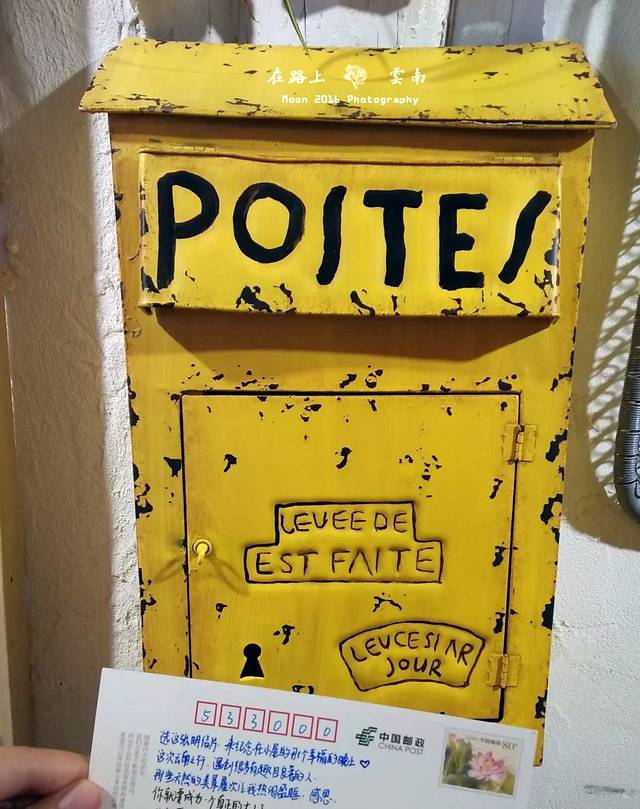 在路上 雲南
Moon 2016 Photography
POSTES
LEVEE DE
EST FAITE
LEVCESIAR
JOUR
533000
中国邮政
CHINA POST
中国邮政 80
选这张明信片,来纪念在小屋的那个幸福的晚上♡
这次云南之行,遇到很多有趣且良善的人
那些天然的美景屡次让我热泪盈眶,感恩.
你就要成为一个真正的大人了